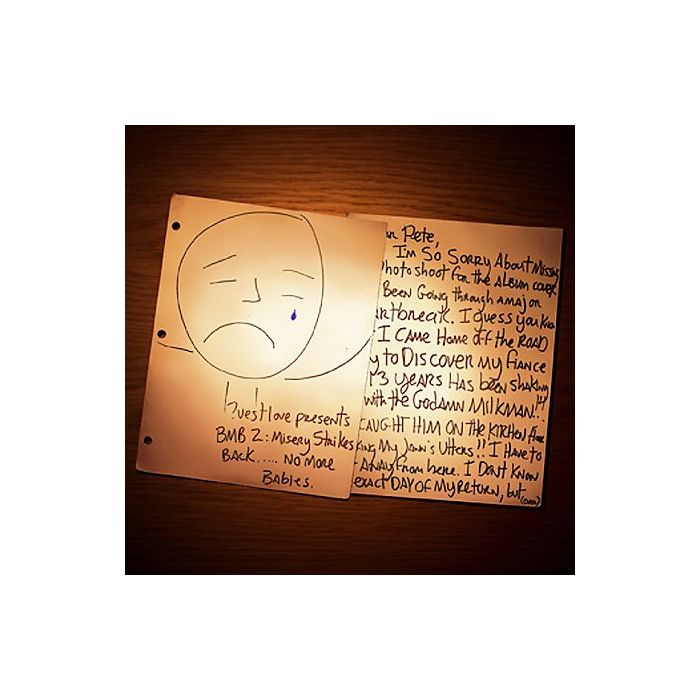 ?uestlove presents
BMB 2: Misery Strikes
BACK..... NO MORE
BABIES.
Pete,
I'm So Sorry About Missing
Photoshoot for the ALBUM cover
BEEN GOING through A MAJOR
I guess you know
I CAME HOME off the ROAD
to DISCOVER my fiance
13 years HAS been shaking
with the GODAMN MILKMAN!!!
CAUGHT HIM ON THE KITCHEN
My Utters!! I HAVE to
AWAY from here. I DON'T KNOW
EXACT DAY of my RETURN, but (over)